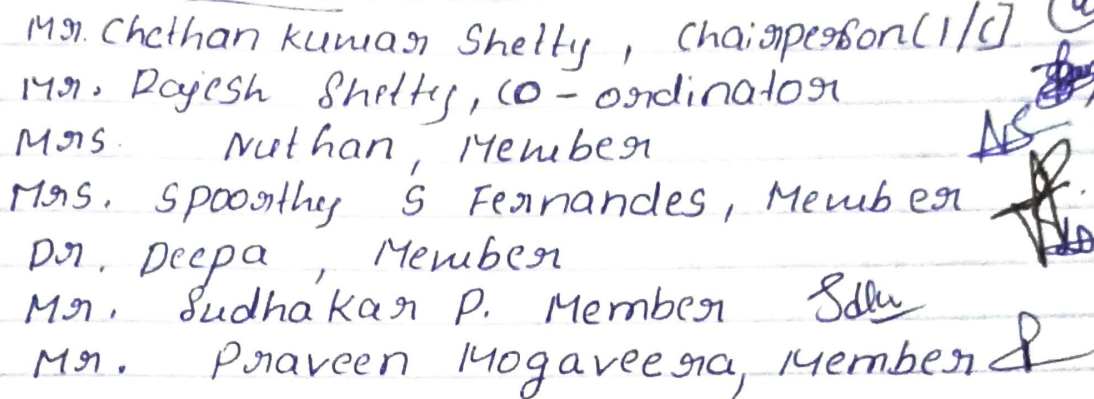 Mr. Chethan kumar Shetty, Chairperson(I/C)
Mr. Rajesh Shetty, co-ordinator
Mrs. Nuthan, Member
Mrs. Spoorthy S Fernandes, Member
Dr. Deepa, Member
Mr. Sudhakar P. Member
Mr. Praveen Mogaveera, Member